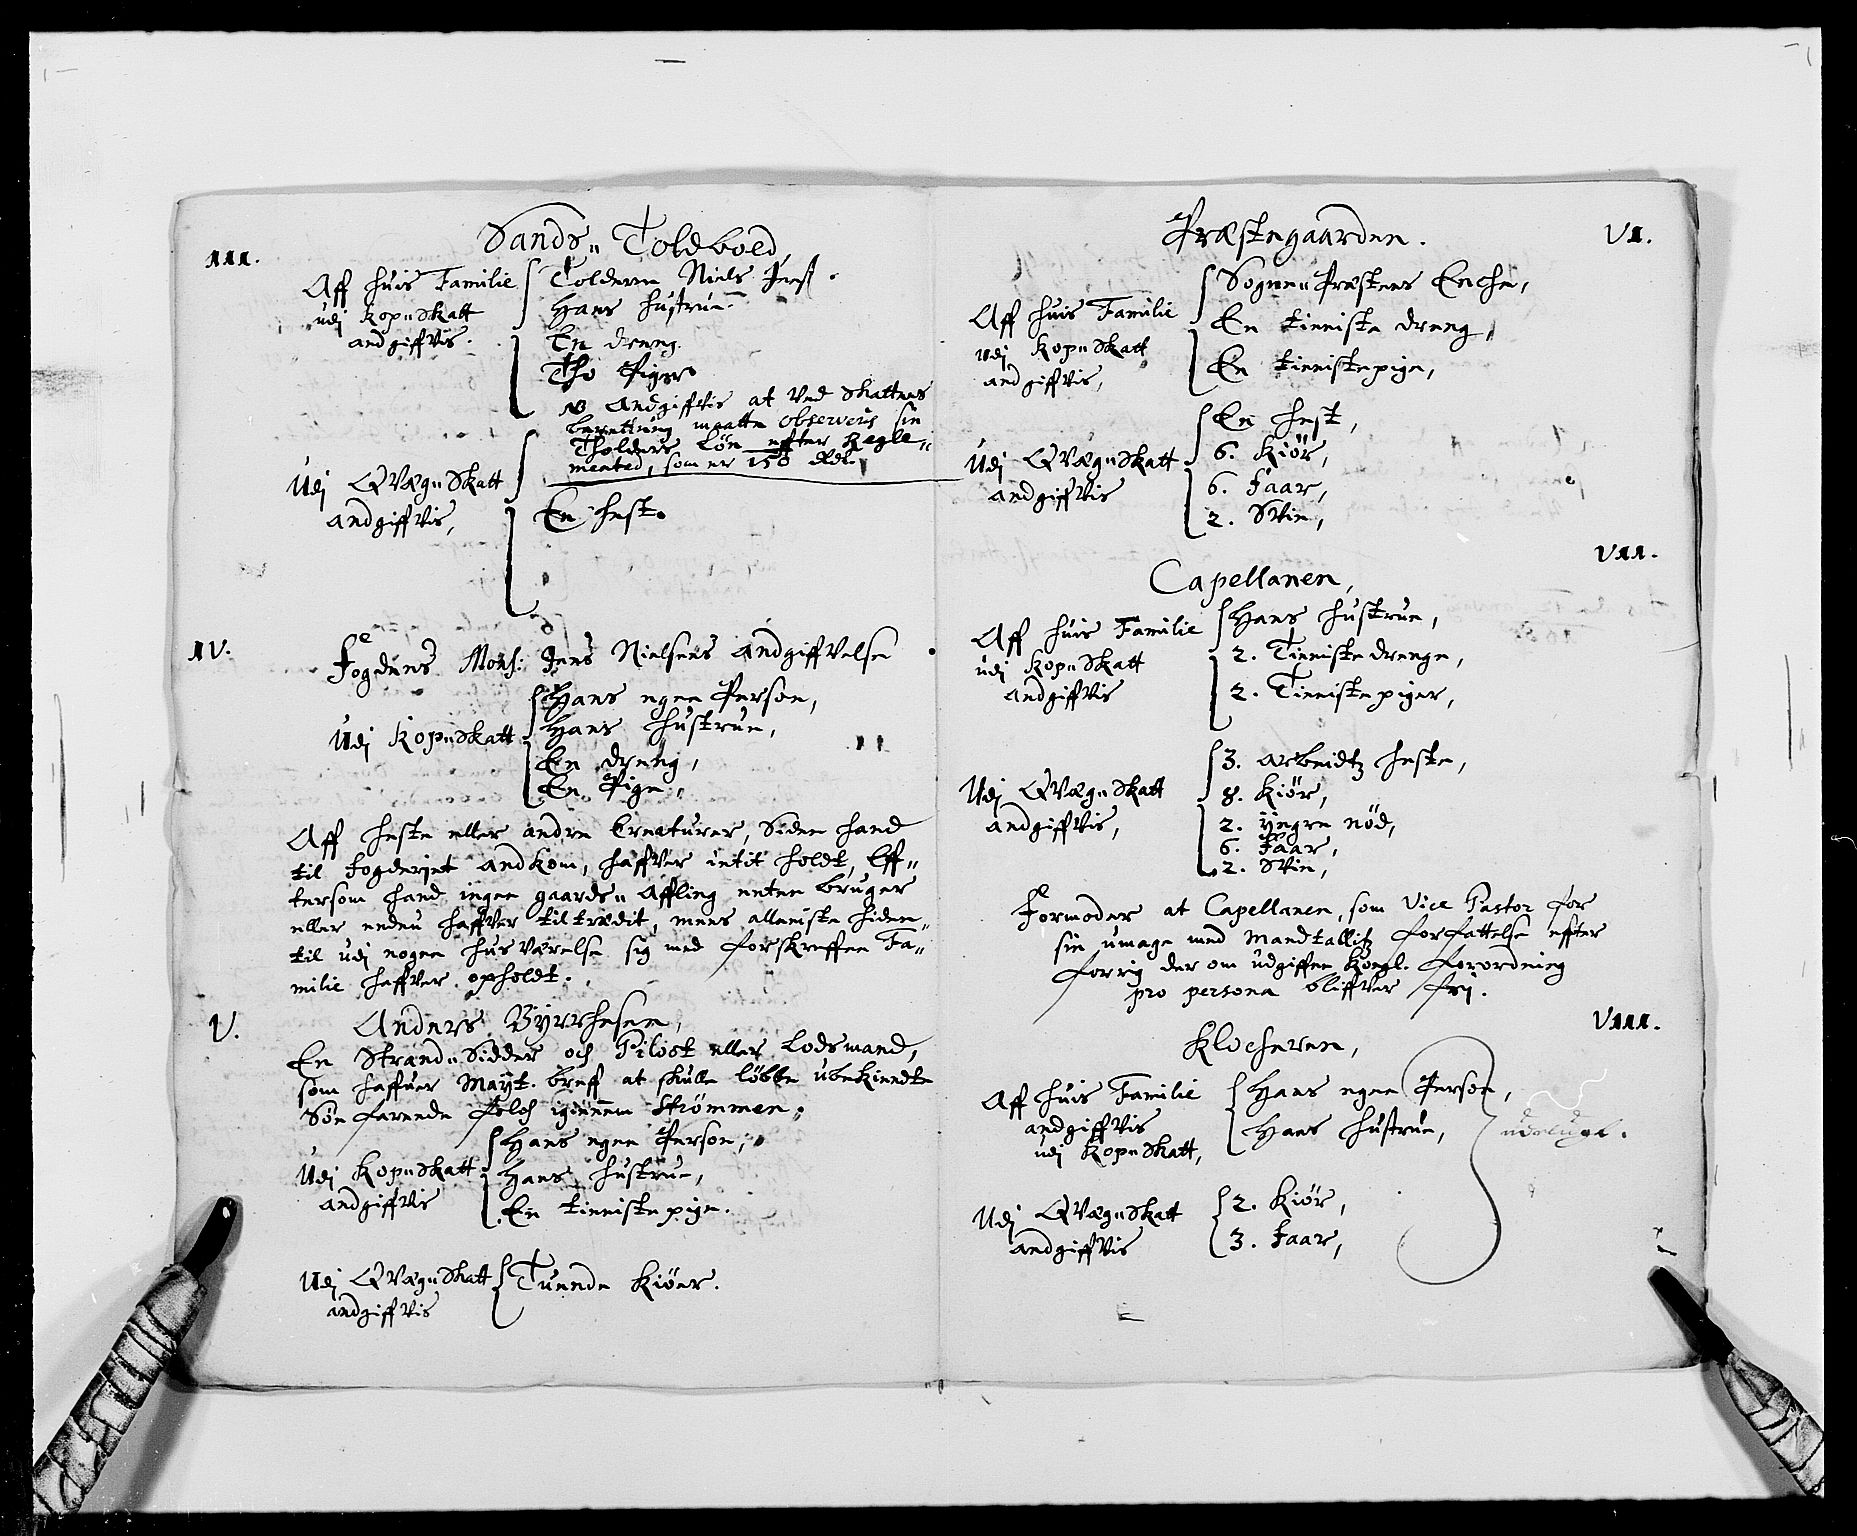 III.
Sands„ Toldboed,
Aff huis Familie
udj Kop„Skatt
andgiffvis.
Tolderen Niels Jens.
Hans hustrue.
En dreng.
Tho Piger
NB Andgiffvis at ved Skattens
berettning maatte observeris sin
Tholders Løn effter Regle„
mented, som er 150 Rdr.
Udj QVæg„Skatt
andgiffvis,
En hest.
IV.
Fogdens Mons: Jens Nielsens andgiffvelse
Udj Kop„Skatt
Hans egen Person,
Hans hustrue,
En dreng,
En Pige.
Aff heste eller andre Creaturer, Siden hand
til fogderjet andkom, haffver intit holdt, Eff„
tersom hand ingen gaards„ Affling enten bruger
eller enden haffver tiltrædit, mens alleniste hiden„
til udj nogen husværelse sig med forskreffen Fa„
milie haffver opholdt.
V.
Anders Byrrhesen,
En Strand„Sidder och Pilost eller Lodsmand,
som haffuer Mayt. breff at skulle løbbe ubekiendte
Søe farende folch igiennem Strømmen;
Udj Kop„Skatt
andgiffvis
Hans egen Person,
Hans hustrue,
En tieniste pige.
Udj QVæg„Skatt
andgiffvis
Tuende Kiøer.
VI.
Præstegaarden.
Aff huis Familie
Udj Kop„Skatt
andgiffvis,
Sogne„Præstens Enche,
En tieniste dreng,
En tienistepige,
Udj QVæg„Skatt
andgiffvis
En hest,
6. Kiör,
6. Faar,
2. Svin,
VII.
Capellanen,
Aff huis Familie
udj Kop„Skatt
andgiffvis
Hans hustrue,
2. Tieniste drenge,
2. Tieniste piger,
Udj QVæg„Skatt
andgiffvis,
3. arbeidtz heste,
8. Kiör,
2. yngre nöd,
6. Faar,
2. Svin,
Formoder at Capellanen, som Vice Pastor for
sin umage med Mandtallitz forfattelse effter
forrig der om udgiffen Kongl. forordning
pro persona bliffver frj.
VIII.
Klocheren,
Aff huis Familie
andgiffvis
udj Kop„Skatt,
Hans egen Person,
Hans hustrue,
udelugt.
Udj QVæg„Skatt
andgiffvis
2. Kiör,
3. Faar,